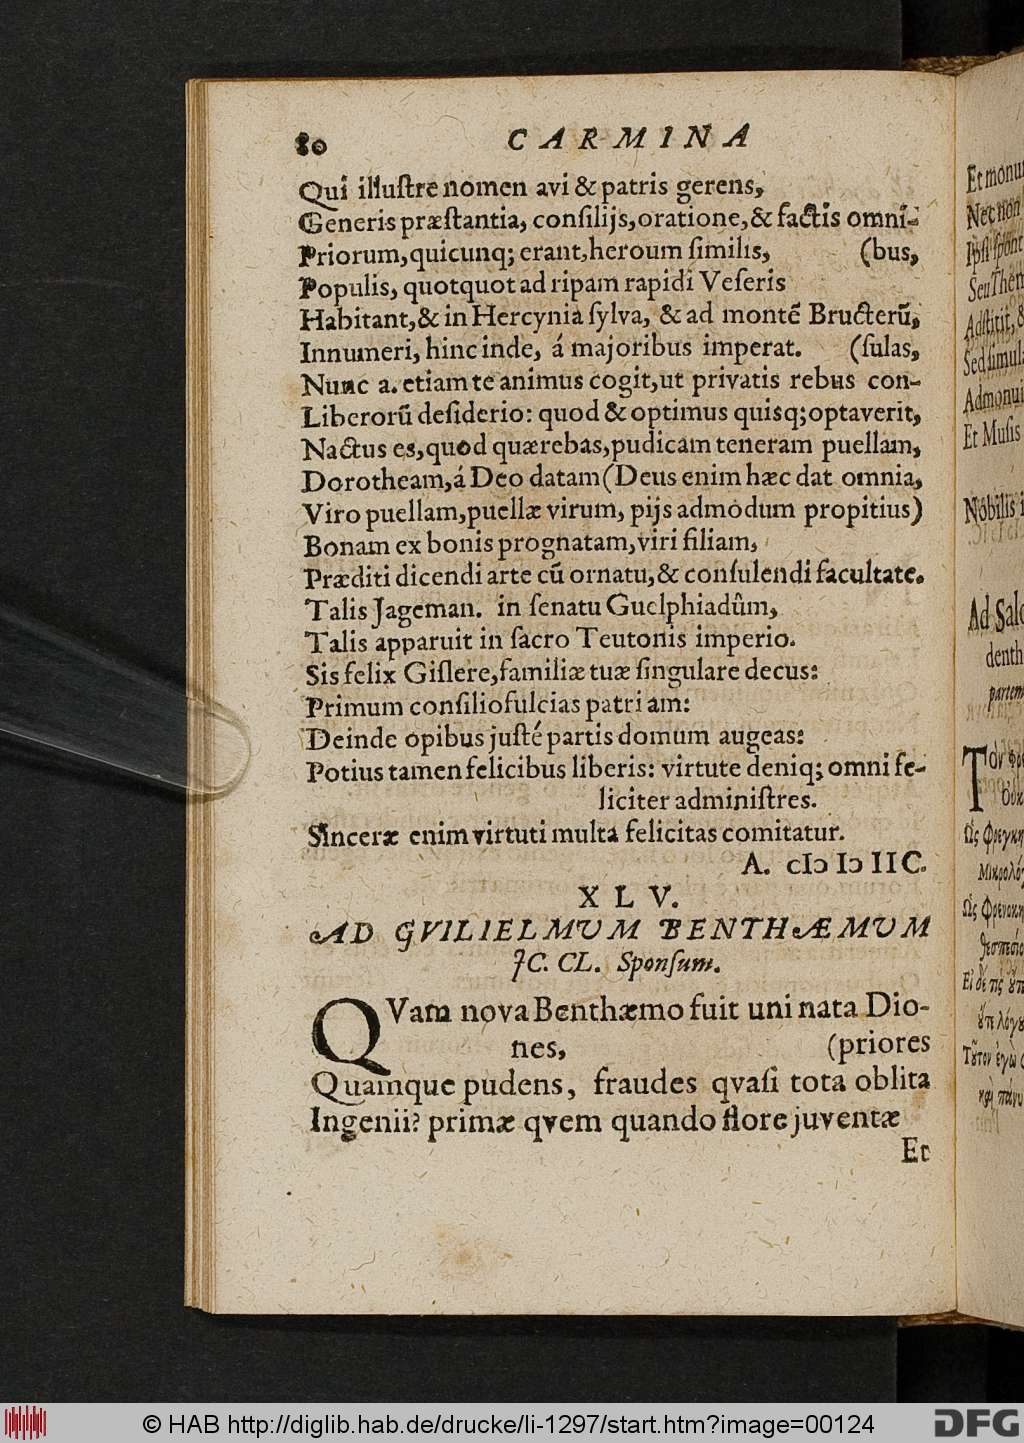 80 CARMINA
Qui illuſtre nomen avi & patris gerens,
Generis præſtantia, conſilijs, oratione, & factis omni-
Priorum, quicunq; erant, heroum ſimilis, (bus,
Populis, quotquot ad ripam rapidi Veſeris
Habitant, & in Hercynia ſylva, & ad montẽ Bructerũ,
Innumeri, hinc inde, á majoribus imperat. (ſulas,
Nunc a. etiam te animus cogit, ut privatis rebus con-
Liberorũ deſiderio: quod & optimus quisq; optaverit,
Nactus es, quod quærebas, pudicam teneram puellam,
Dorotheam, á Deo datam (Deus enim hæc dat omnia,
Viro puellam, puellæ virum, pijs admodum propitius)
Bonam ex bonis prognatam, viri filiam,
Præditi dicendi arte cũ ornatu, & conſulendi facultate.
Talis Jageman. in ſenatu Guelphiadûm,
Talis apparuit in ſacro Teutonis imperio.
Sis felix Giſlere, familiæ tuæ ſingulare decus:
Primum conſilio fulcias patriam:
Deinde opibus juſté partis domum augeas:
Potius tamen felicibus liberis: virtute deniq; omni fe-
liciter adminiſtres.
Sinceræ enim virtuti multa felicitas comitatur.
A. cIɔ Iɔ IIC.
XLV.
AD GVILIELMVM BENTHÆMVM
JC. CL. Sponſum.
QVam nova Benthæmo fuit uni nata Dio-
nes, (priores
Quamque pudens, fraudes qvaſi tota oblita
Ingenii? primæ qvem quando flore juventæ
Et
Et monu
Nec non
Ipſi ſpont
Seu Them
Adſtitit, &
Sed ſimula
Admonui
Et Muſis
Nobilis i
Ad Salo
denth
partem
© HAB http://diglib.hab.de/drucke/li-1297/start.htm?image=00124
DFG